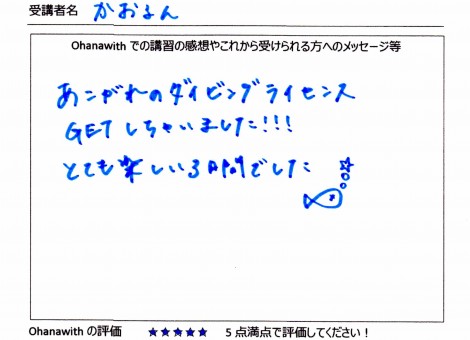 受講者名 かおるん
Ohanawith での講習の感想やこれから受けられる方へのメッセージ等
あこがれのダイビングライセンス
GETしちゃいました!!!
とても楽しい3日間でした
Ohanawith の評価 ★★★★★ 5点満点で評価してください！